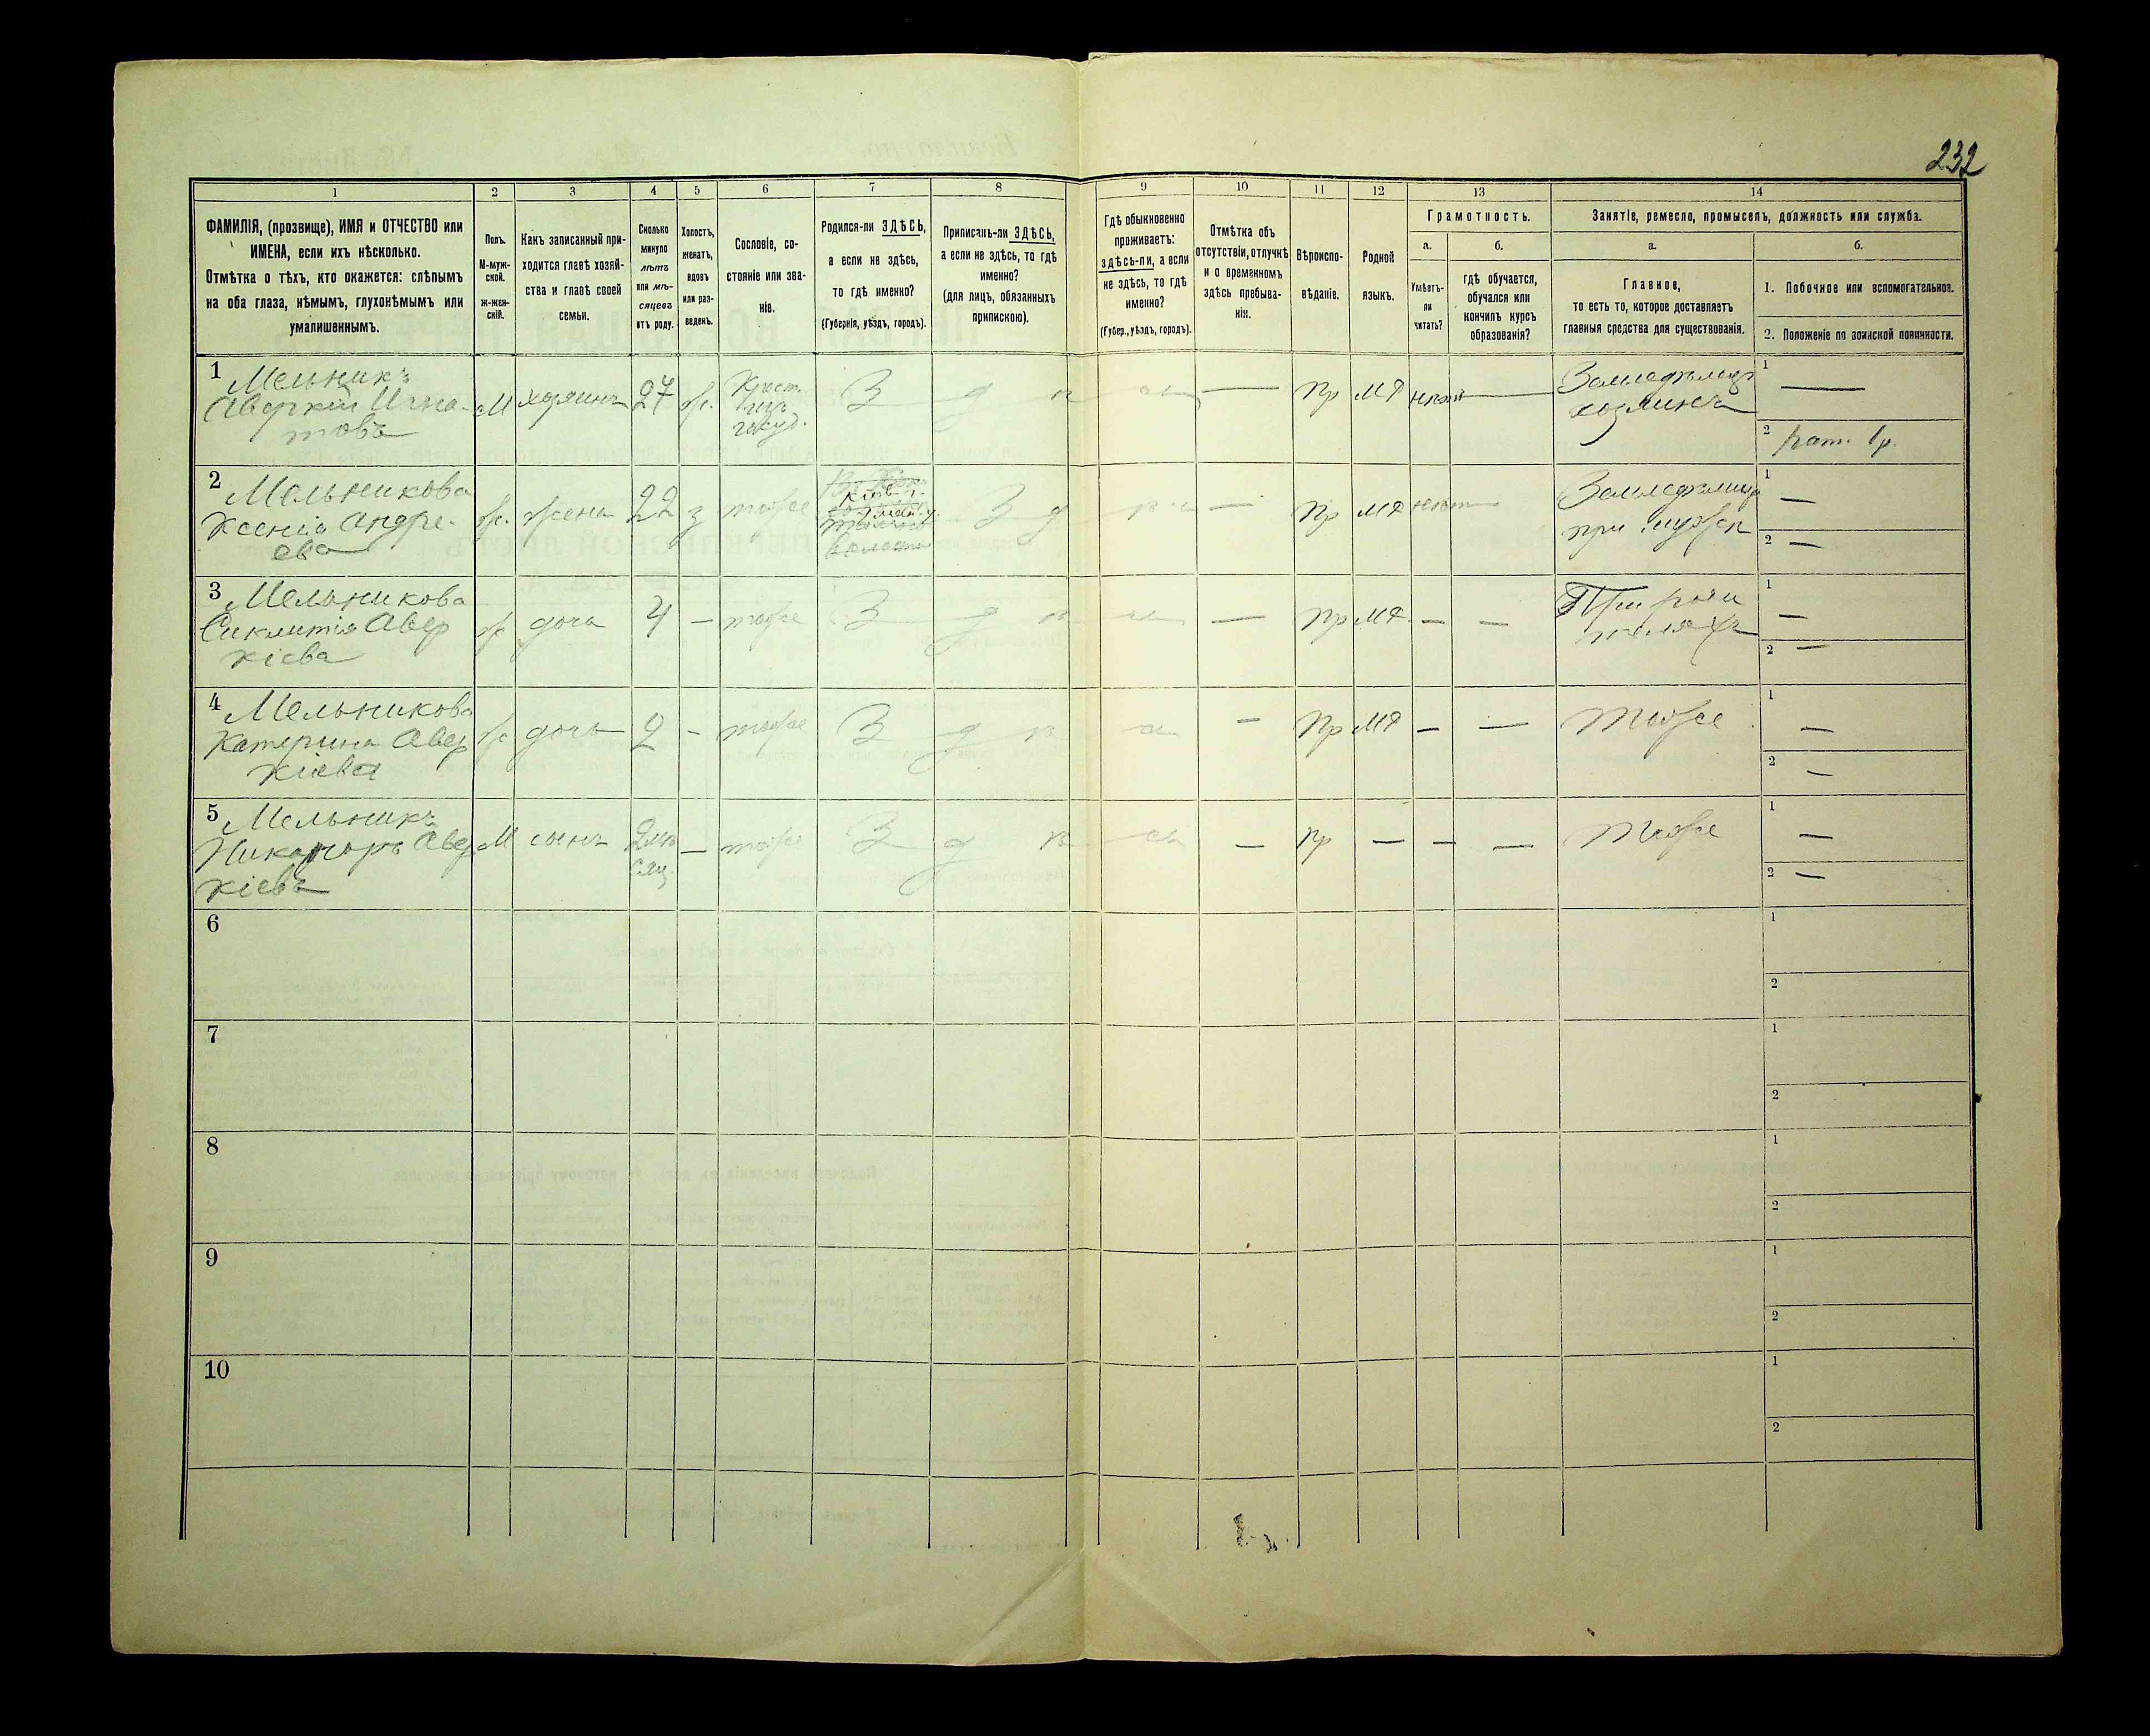 232
1
2
3
4
5
6
7
8
9
10
11
12
13
14
ФАМИЛІЯ, (прозвище), ИМЯ и ОТЧЕСТВО или
ИМЕНА, если ихъ нѣсколько.
Отмѣтка о тѣхъ, кто окажется: слѣпымъ
на оба глаза, нѣмымъ, глухонѣмымъ или
умалишеннымъ.
Полъ.
М-муж-
ской.
ж-жен-
скій.
Какъ записанный при-
ходится главѣ хозяй-
ства и главѣ своей
семьи.
Сколько
минуло
лѣтъ
или мѣ-
сяцевъ
отъ роду.
Холостъ,
женатъ,
вдовъ
или раз-
веденъ.
Сословіе, со-
стояніе или зва-
ніе.
Родился-ли ЗДѢСЬ,
а если не здѣсь,
то гдѣ именно?
(Губернія, уѣздъ, городъ).
Приписанъ-ли ЗДѢСЬ,
а если не здѣсь, то гдѣ
именно?
(для лицъ, обязанныхъ
припискою).
Гдѣ обыкновенно
проживаетъ:
здѣсь-ли, а если
не здѣсь, то гдѣ
именно?
(Губер., уѣздъ, городъ).
Отмѣтка объ
отсутствіи, отлучкѣ
и о временномъ
здѣсь пребыва-
ніи.
Вѣроиспо-
вѣданіе.
Родной
языкъ.
Грамотность.
а.
б.
Умѣетъ-
ли
читать?
гдѣ обучается,
обучался или
кончилъ курсъ
образованія?
Занятіе, ремесло, промыселъ, должность или служба.
а.
б.
Главное,
то есть то, которое доставляетъ
главныя средства для существованія.
1. Побочное или вспомогательное.
2. Положеніе по воинской повинности.
1 Мельникъ
Аверкій Игна-
товъ
М
хозяинъ
27
ж.
Крест.
изъ
госуд.
З д
—
Пр
МР
нѣтъ
Земледѣлецъ
хозяинъ
1 —
2 рат. 1 р.
2 Мельникова
Ксенія Андре-
ева
ж.
жена
22
з
тоже
Кіев. г.
волости
З д
—
Пр
МР
нѣтъ
Земледѣлица
при мужѣ
1 —
2 —
3 Мельникова
Синклитія Авер
кіева
ж
дочь
4
—
тоже
З д
—
Пр
МР
—
—
При роди
теляхъ
1 —
2 —
4 Мельникова
Катерина Авер
кіева
ж
дочь
2
—
тоже
З д
—
Пр
МР
—
—
Тоже
1 —
2 —
5 Мельникъ
Никаноръ Авер
кіевъ
М
сынъ
2 мѣ
сяц.
—
тоже
З д
—
Пр
—
—
—
Тоже
1 —
2 —
6
1
2
7
1
2
8
1
2
9
1
2
10
1
2